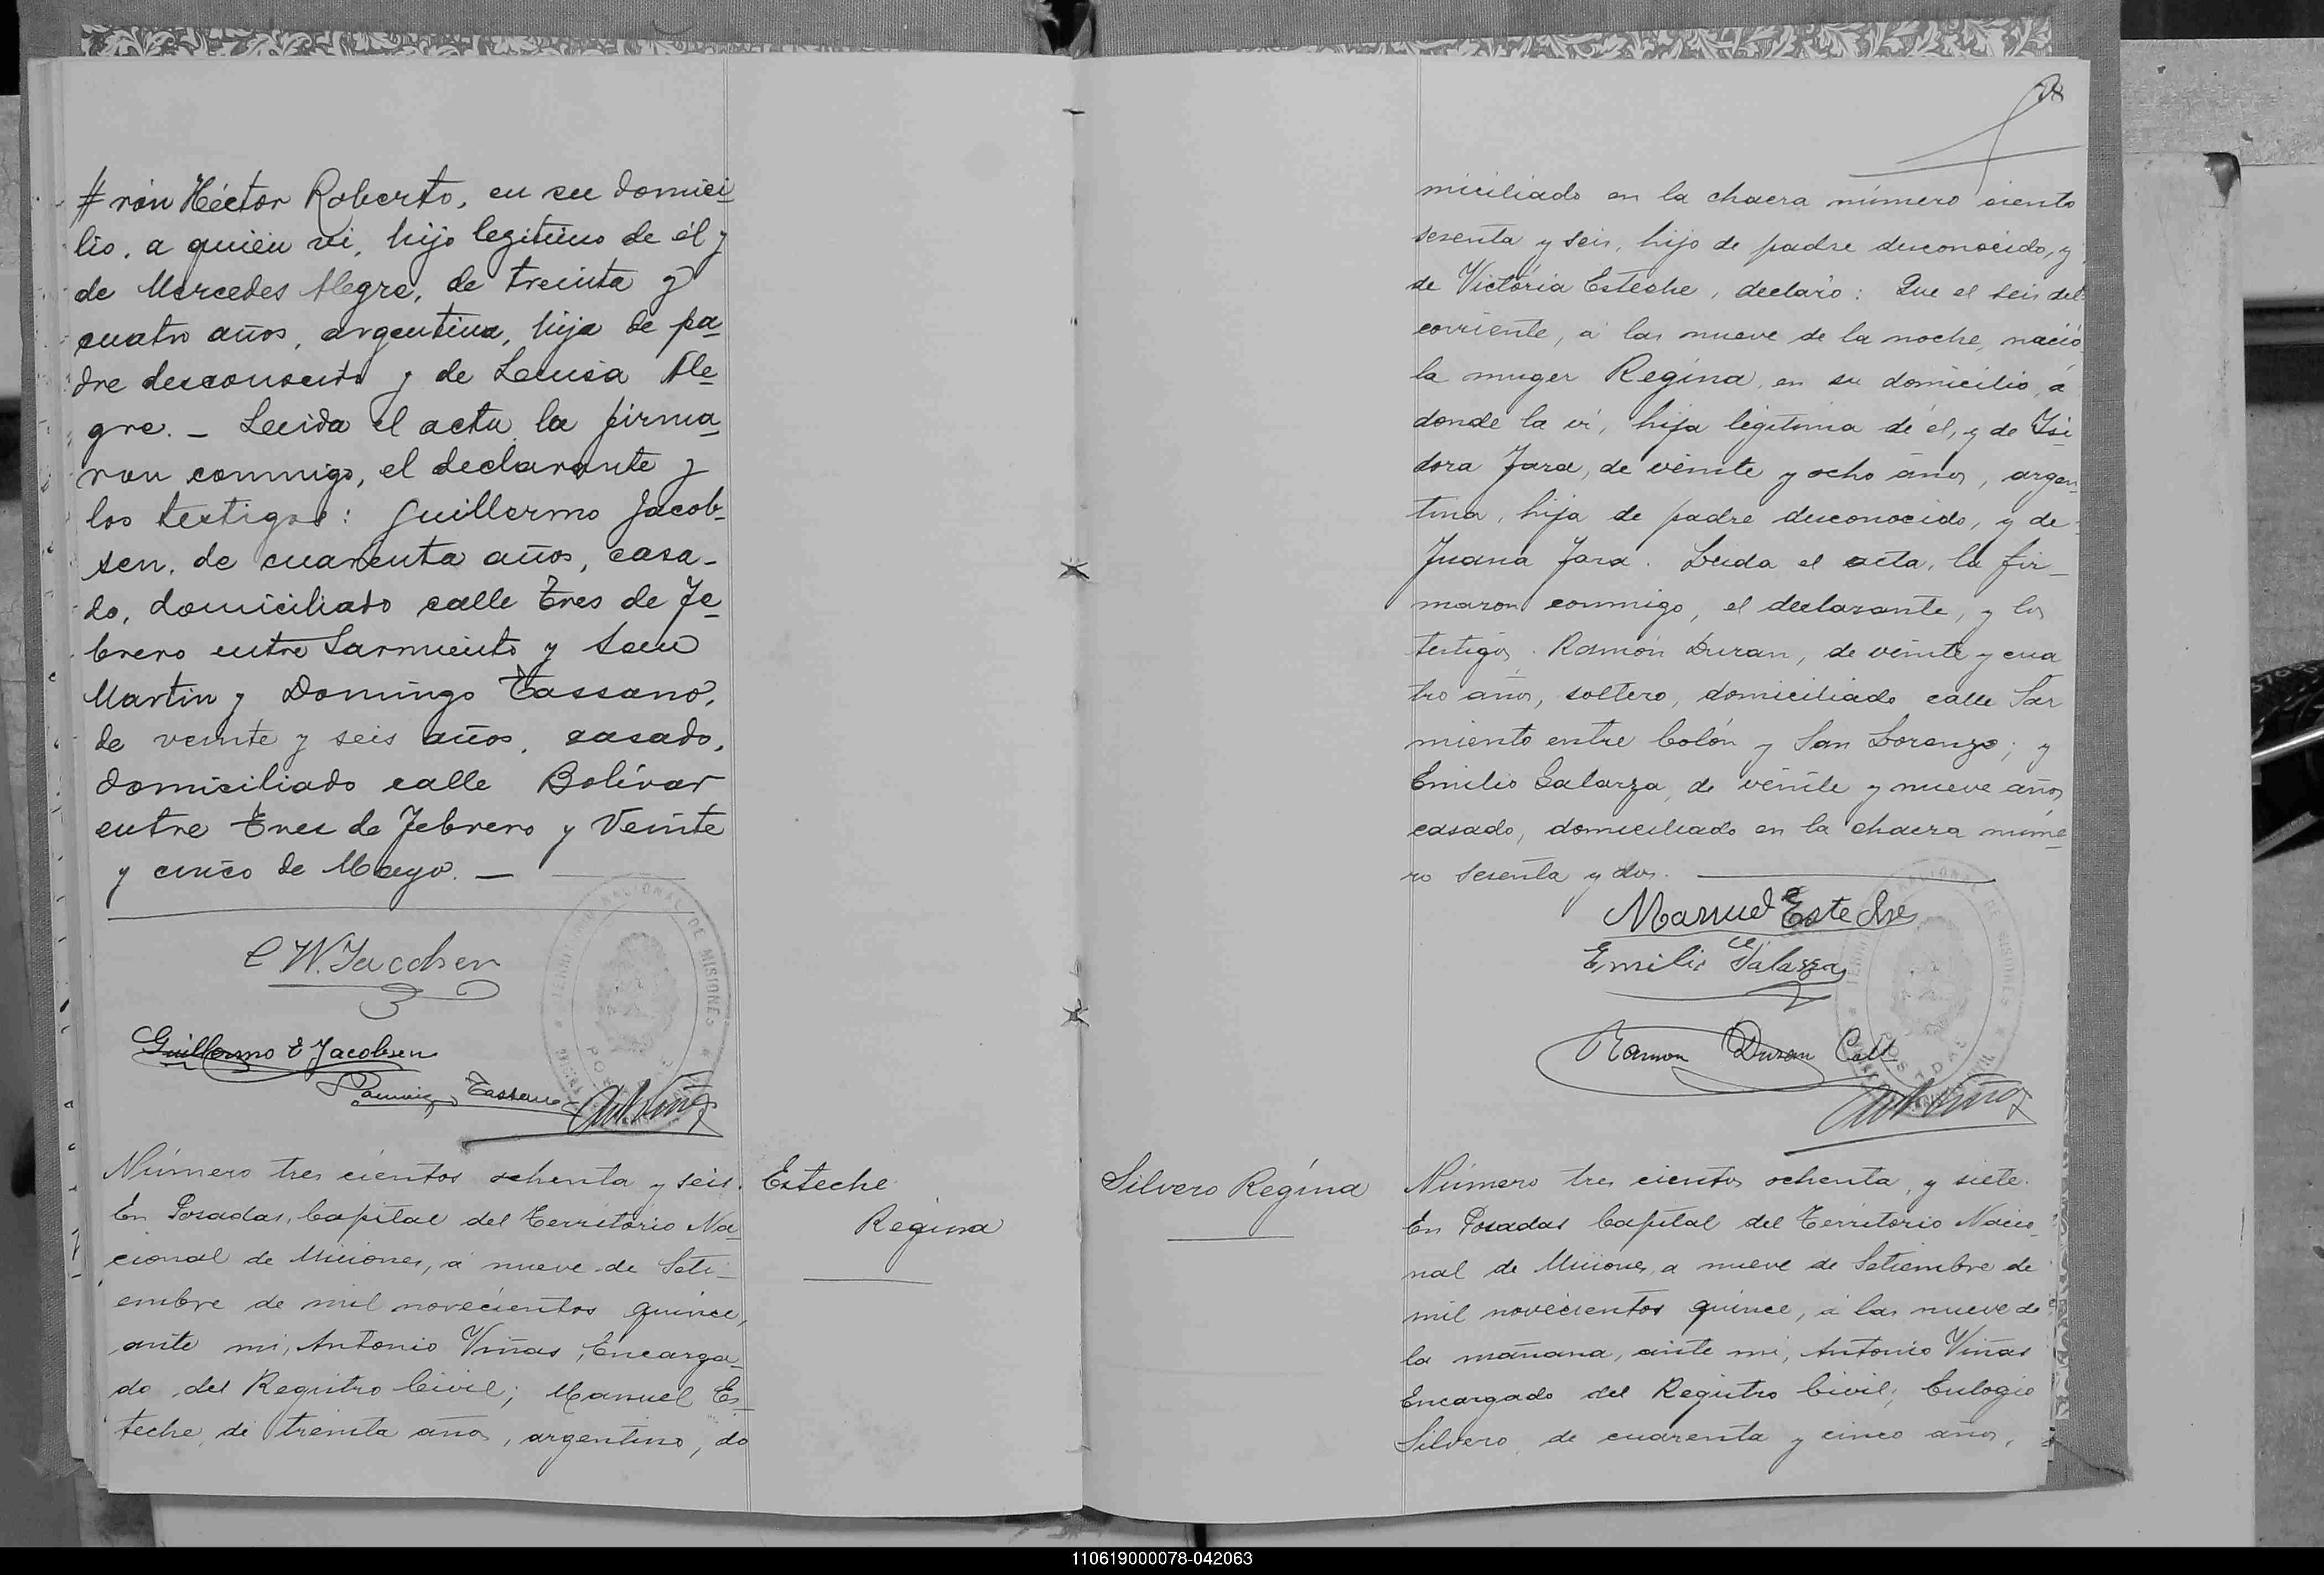 rón Héctor Roberto, en su domici
lio, a quien vi, hijo legítimo de él y
de Mercedes Alegre, de treinta y
cuatro años, argentina, hija de pa
dre desconocido y de Luisa Ale
gre. — Leida el acta la firma
ron conmigo, el declarante y
los testigos: Guillermo Jacob-
sen, de cuarenta años, casa-
do, domiciliado calle Tres de Fe
brero entre Sarmiento y San
Martin y Domingo Tassano,
de veinte y seis años, casado,
domiciliado calle Bolívar
entre Tres de Febrero y Veinte
y cinco de Mayo. —
TERRITORIO NACIONAL DE MISIONES
POSADAS
C W. Jacobsen
Guillermo E Jacobsen
Domingo Tassano
Ant Viñas
Número tres cientos ochenta y seis.
En Posadas, Capital del Territorio Na
cional de Misiones, á nueve de Seti-
embre de mil novecientos quince,
ante mi, Antonio Viñas, Encarga-
do del Registro Civil; Manuel Es-
teche, de treinta años, argentino, do
Esteche
Regina
78
miciliado en la chacra número ciento
sesenta y seis, hijo de padre desconocido, y
de Victória Esteche, declaró: Que el seis del
corriente, á las nueve de la noche, nació
la muger Regina, en su domicilio, á
donde la ví, hija legítima de él, y de Isi
dora Jara, de veinte y ocho años, argen
tina, hija de padre desconocido, y de
Juana Jara. Leida el acta, la fir-
maron conmigo, el declarante, y los
testigos: Ramón Duran, de veinte y cua
tro años, soltero, domiciliado calle Sar
miento entre Colón y San Lorenzo; y
Emilio Galarza, de veinte y nueve años
casado, domiciliado en la chacra núme
ro sesenta y dos.
Manuel Esteche
Emilio Galarza
Ramon Duran Coll
Ant Viñas
Silvero Regina
Número tres cientos ochenta, y siete.
En Posadas Capital del Territorio Nacio
nal de Misiones, a nueve de Setiembre de
mil novecientos quince, á las nueve de
la mañana, ante mi, Antonio Viñas
Encargado del Registro Civil; Eulogio
Silvero, de cuarenta y cinco años,
110619000078-042063